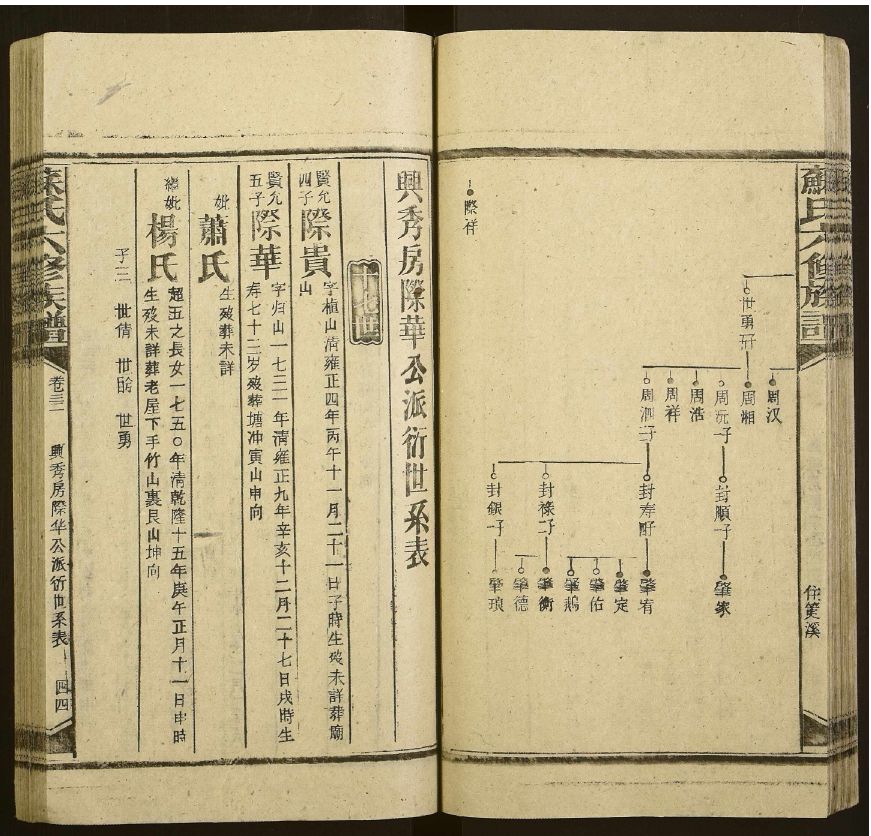 蘇氏六修族譜
住篾溪
周汉
世勇子
周湘
周沅子
周浩
周祥
周泗子
封順子
封寿子
封祿子
封銀子
肇家
肇宥
肇定
肇佑
肇鵝
肇衡
肇德
肇琅
際祥
興秀房際華公派衍世系表
十七世
賢允四子 際貴 字植山清雍正四年丙午十一月二十一日子時生歿未詳葬廟山
賢允五子 際華 字归山一七三一年清雍正九年辛亥十二月二十七日戌時生寿七十三岁歿葬塘冲寅山申向
妣 蕭氏 生歿葬未詳
繼妣 楊氏 超五之長女一七五〇年清乾隆十五年庚午正月十一日申時生歿未詳葬老屋下手竹山裏艮山坤向
子三 世倩 世 世勇
蘇氏六修族譜 卷三二 興秀房際华公派衍世系表 四四